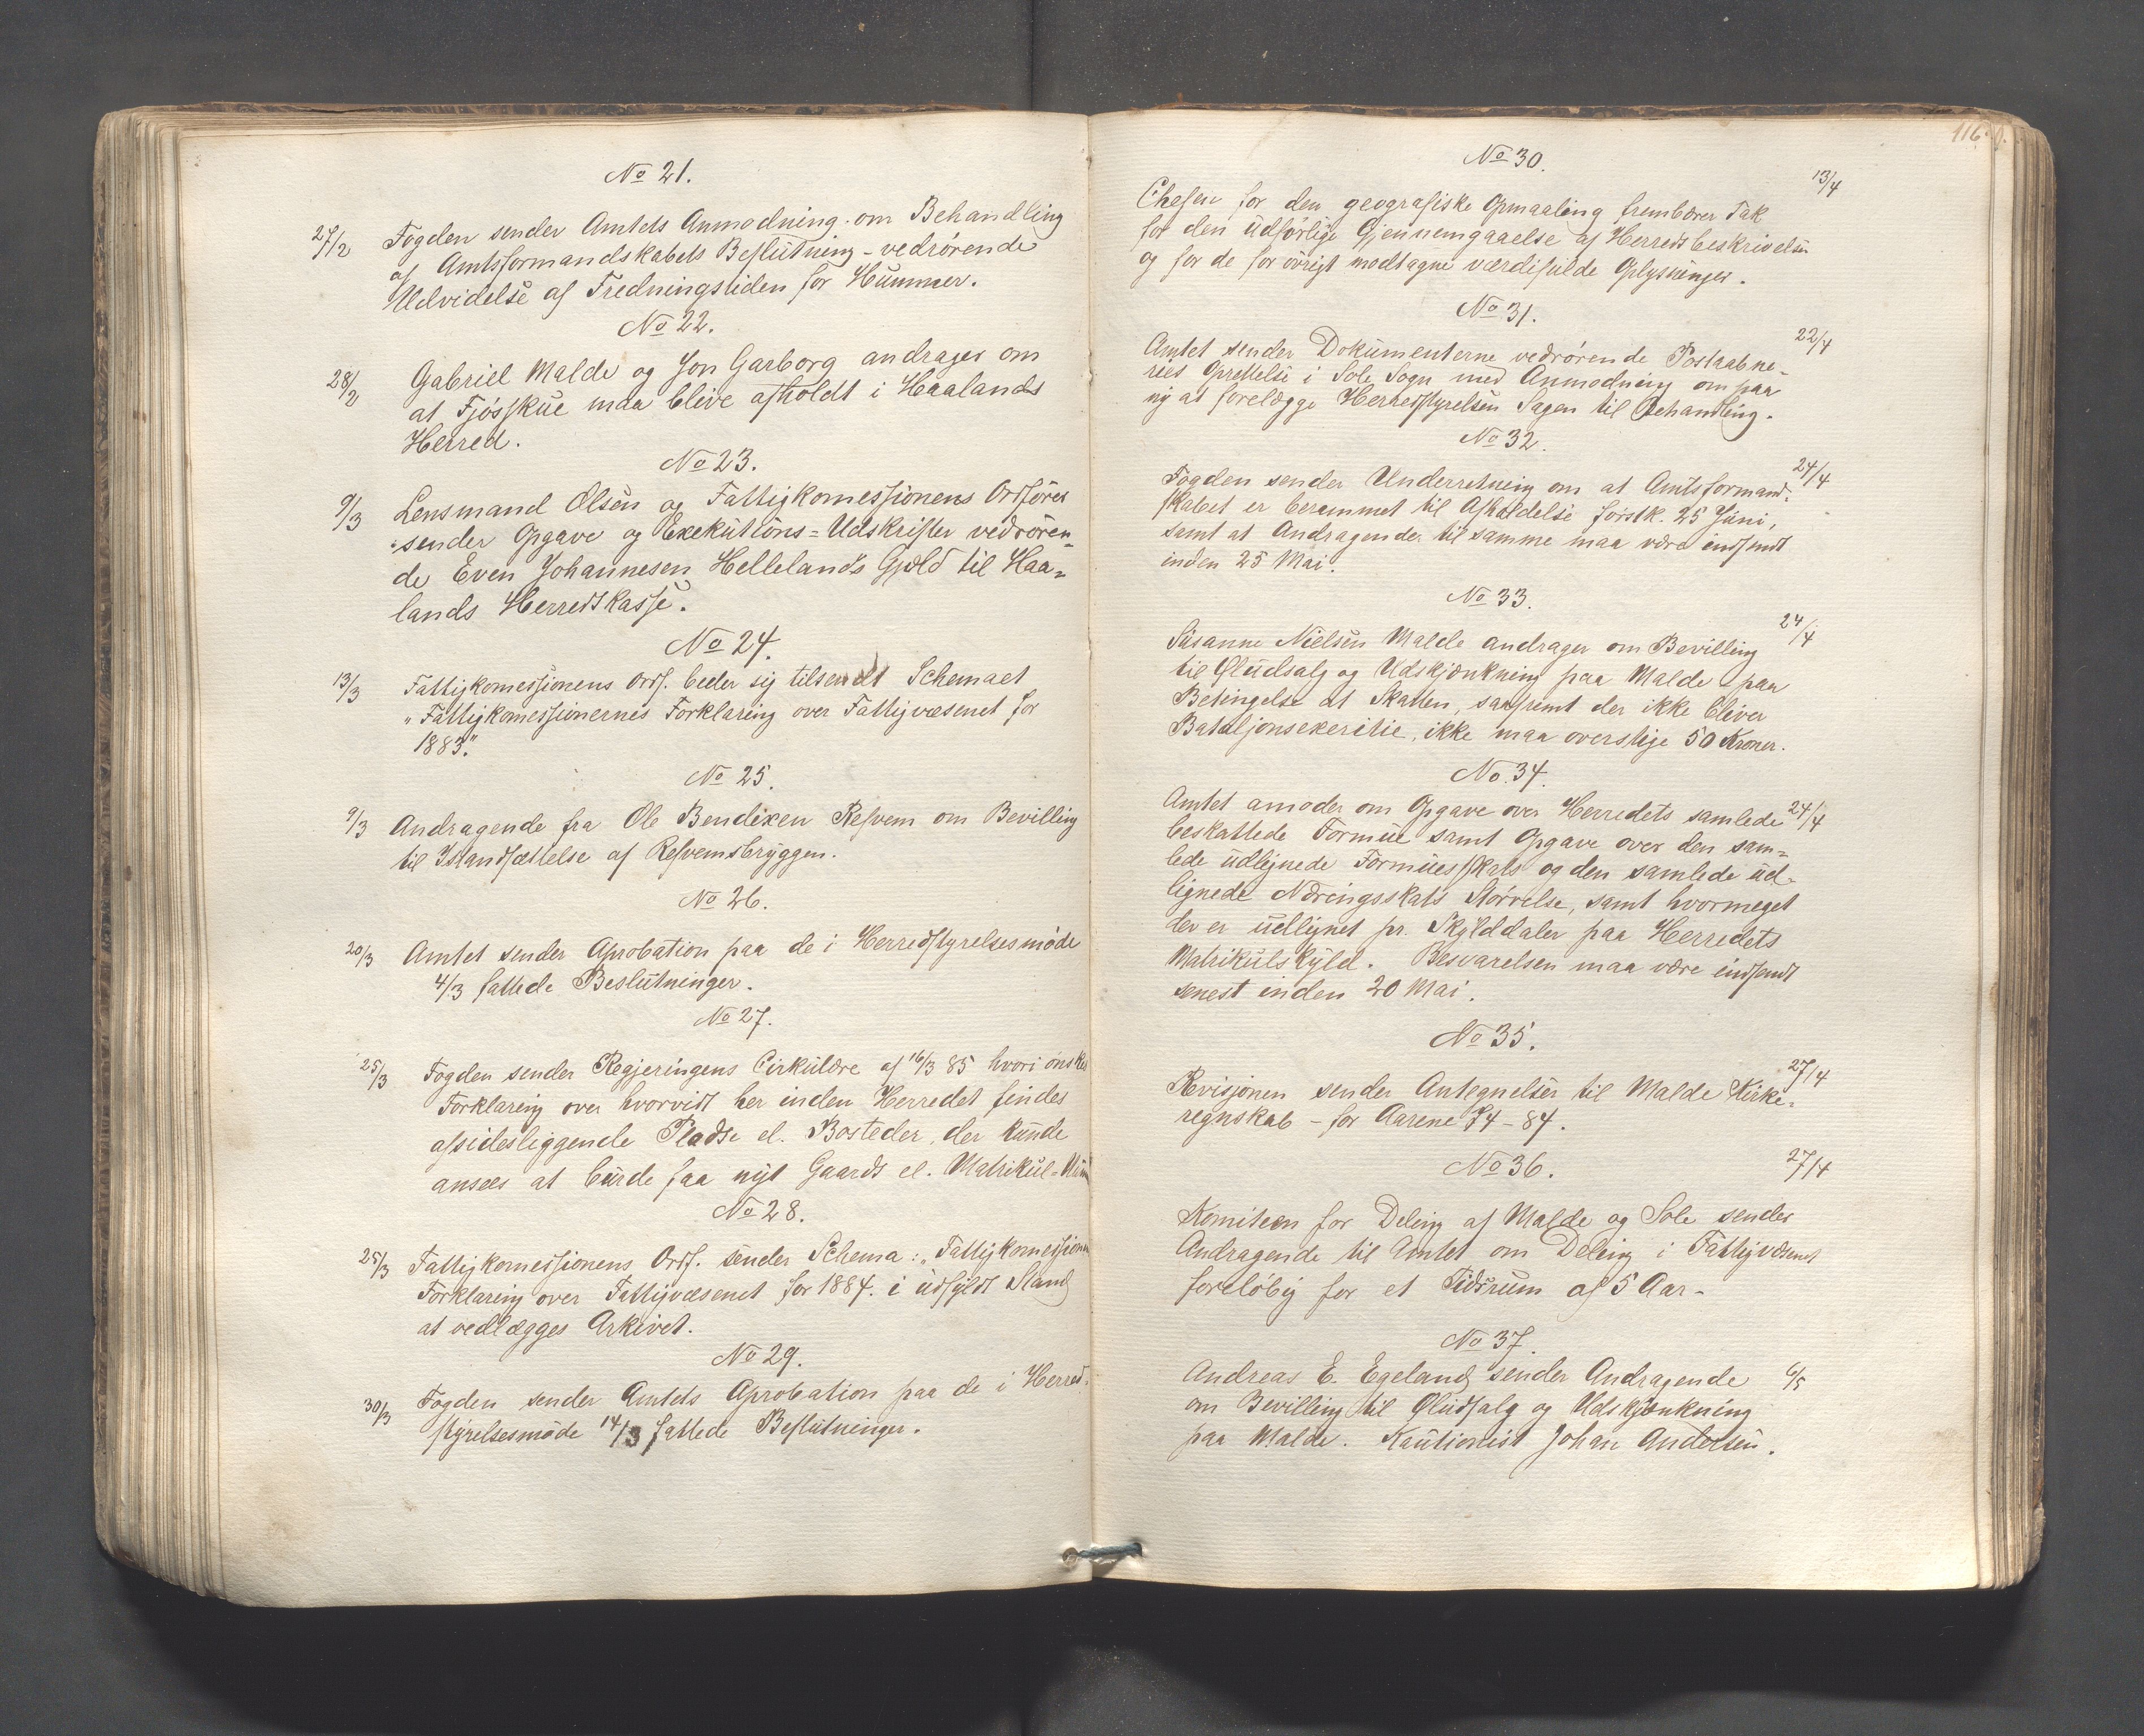 No 21.
27/2 Fogden sender Amtets Anmodning om Behandling
af Amtsformandskabets Beslutning - vedrørende
Udvidelse af Fredningstiden for Hummer.
No 22.
28/2 Gabriel Malde og Jon Garborg andrager om
at Fjösskue maa blive afholdt i Haalands
Herred.
No 23.
9/3 Lensmand Olsen og Fattigkomessionens Ordförer
sender Opgave og Exekutions=Udskrifter vedrören=
de Even Johannesen Hellelands Gjæld til Haa=
lands Herredskasse.
No 24.
13/3 Fattigkomessionens Ordf. beder sig tilsendt Schemaet
"Fattigkomessionernes Forklaring over Fattigvæsenet for
1883".
No 25.
9/3 Andragende fra Ole Bendixen Refvem om Bevilling
til Istandsættelse af Refvemsbryggen.
No 26.
20/3 Amtet sender Aprobation paa de i Herredstyrelsesmøde
4/3 fattede Beslutninger.
No 27.
25/3 Fogden sender Regjeringens Cirkulære af 16/3 85 hvori önskes
Forklaring over hvorvidt her inden Herredet findes
afsidesliggende Pladse el. Bosteder, der kunde
ansees at burde faa nyt Gaards el. Matrikul=Num
No 28.
25/3 Fattigkomessionens Ordf. sender Schema: "Fattigkomessionens
Forklaring over Fattigvæsenet for 1884. i udfyldt Stand
at vedlægges Arkivet.
No 29.
30/3 Fogden sender Amtets Aprobation paa de i Herred=
styrelsesmøde 14/3 fattede Beslutninger.
116
No 30.
Chefen for den geografiske Opmaaling frembærer Tak 13/4
for den udførlige Gjennemgaaelse af Herredsbeskrivelsen
og for de for øvrigt modtagne værdifulde Oplysninger.
No 31.
Amtet sender Dokumenterne vedrørende Postaabne- 22/4
riets Oprettelse i Sole Sogn med Anmodning om paa
ny at forelægge Herredstyrelsen Sagen til Behandling.
No 32.
Fogden sender Underretning om at Amtsformand- 24/4
skabet er berammet til Afholdelse førstk. 25 Juni,
samt at Andragender til samme maa være indsendt
inden 25 Mai.
No 33.
Susanne Nielsen Malde andrager om Bevilling 24/4
til Øludsalg og Udskjænkning paa Malde paa
Betingelse at Skatten, saafremt der ikke bliver
Bataljonsekersitie, ikke maa overstige 50 Kroner.
No. 34.
Amtet amoder om Opgave over Herredets samlede 24/4
beskattede Formue samt Opgave over den sam=
lede udlignede Formuesskats og den samlede ud-
lignede Næringsskats Størrelse, samt hvormeget
der er udlignet pr. Skylddaler paa Herredets
Matrikulskyld. Besvarelsen maa være indsendt
senest inden 20 Mai.
No 35.
Revisjonen sender Antegnelser til Malde Kirke= 27/4
regnskab - for Aarene 74-84.
No 36. 27/4
Komiteen for Deling af Malde og Sole sender
Andragende til Amtet om Deling i Fattigvæsenet
foreløbig for et Tidsrum af 5 Aar-
No 37.
Andreas E. Egeland sender Andragende 6/5
om Bevilling til Øludsalg og Udskjænkning
paa Malde. Kautionist Johan Andersen.